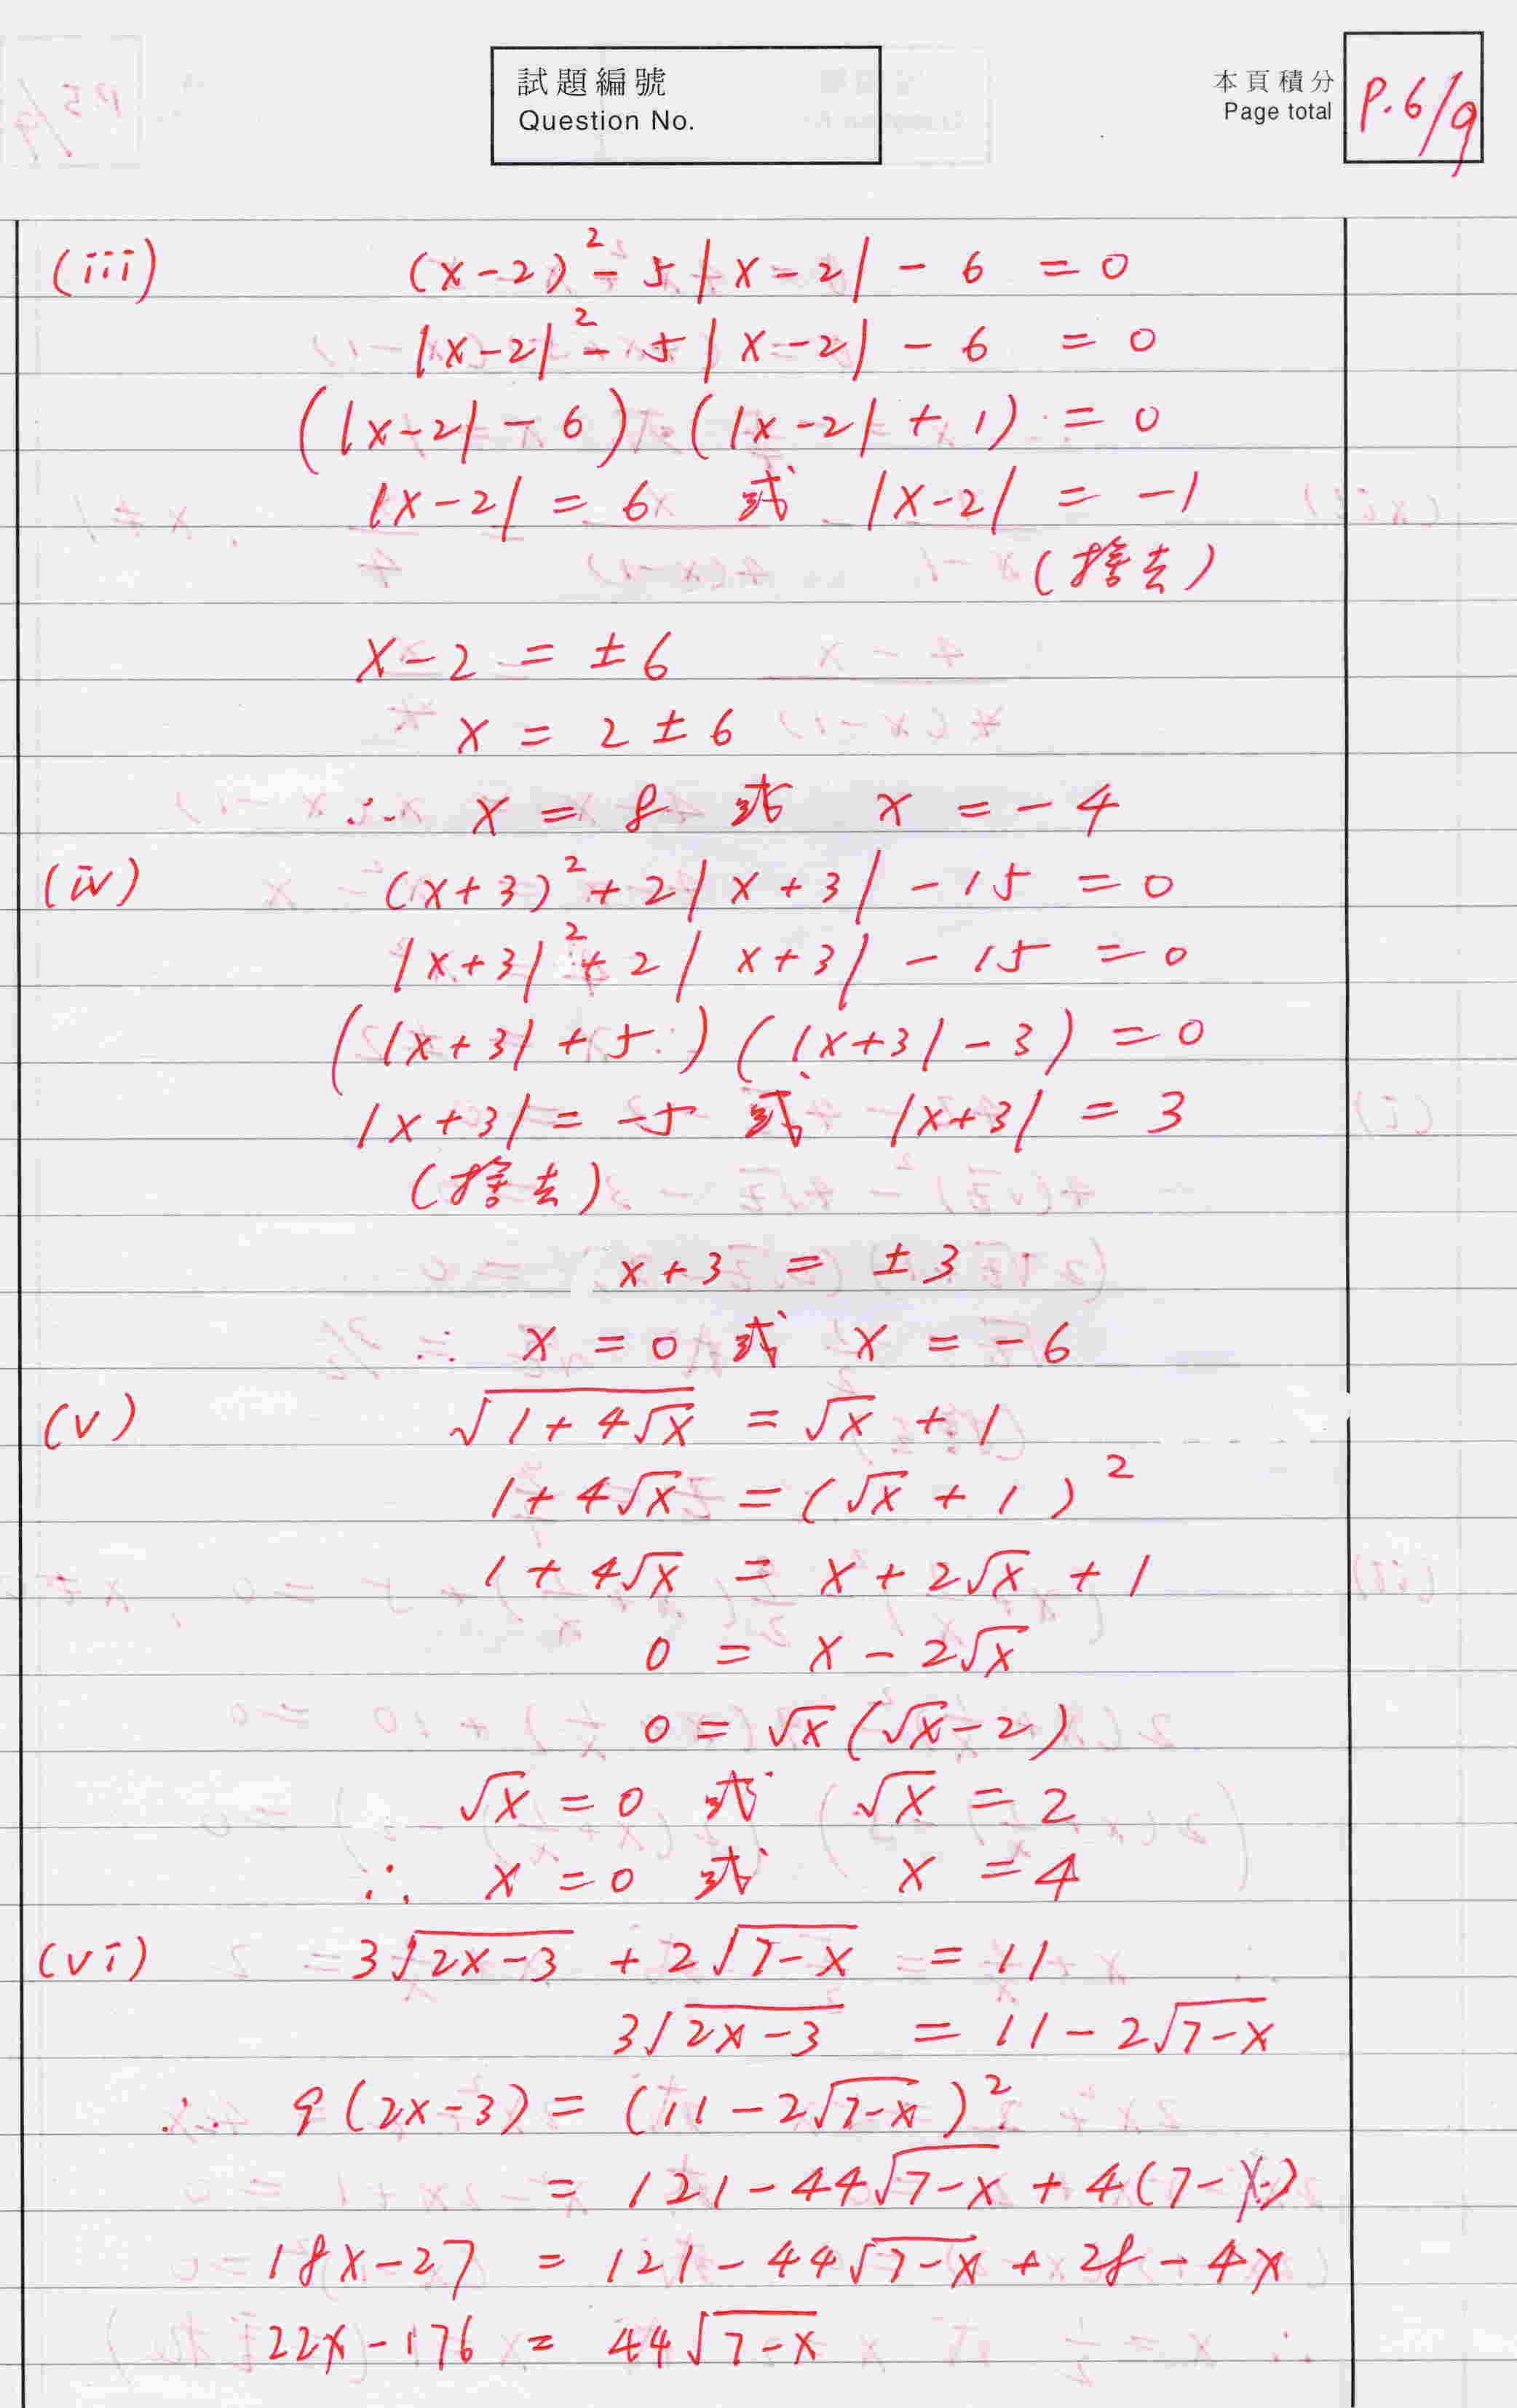 試題編號
Question No.
本頁積分
Page total
P.6/9
(iii) (x-2)² - 5|x-2| - 6 = 0
|x-2|² - 5|x-2| - 6 = 0
(|x-2| - 6) (|x-2| + 1) = 0
|x-2| = 6 或 |x-2| = -1
(捨去)
x-2 = ±6
x = 2 ± 6
∴ x = 8 或 x = -4
(iv) (x+3)² + 2|x+3| - 15 = 0
|x+3|² + 2|x+3| - 15 = 0
(|x+3| + 5) (|x+3| - 3) = 0
|x+3| = -5 或 |x+3| = 3
(捨去)
x+3 = ±3
∴ x = 0 或 x = -6
(v) √(1+4√x) = √x + 1
1+4√x = (√x + 1)²
1 + 4√x = x + 2√x + 1
0 = x - 2√x
0 = √x(√x-2)
√x = 0 或 √x = 2
∴ x = 0 或 x = 4
(vi) 3√(2x-3) + 2√(7-x) = 11
3√(2x-3) = 11 - 2√(7-x)
∴ 9(2x-3) = (11 - 2√(7-x))²
= 121 - 44√(7-x) + 4(7-x)
18x-27 = 121 - 44√(7-x) + 28 - 4x
22x-176 = 44√(7-x)